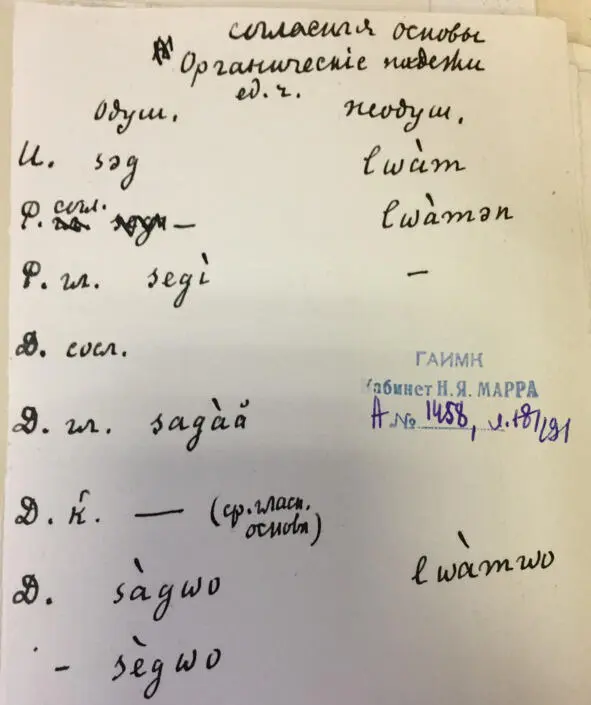 согласныя основы
Органическіе падежи
ед. ч.
одуш. неодуш.
И. səg lwàm
Р. согл. — lwàmən
Р. гл. segì —
Д. согл.
Д. гл. sagàă
ГАИМК
Кабинет Н.Я. МАРРА
А № 1458, л. 181/191
Д. к̑. — (ср. гласн.
основы)
Д. sàgwo lwàmwo
- sègwo